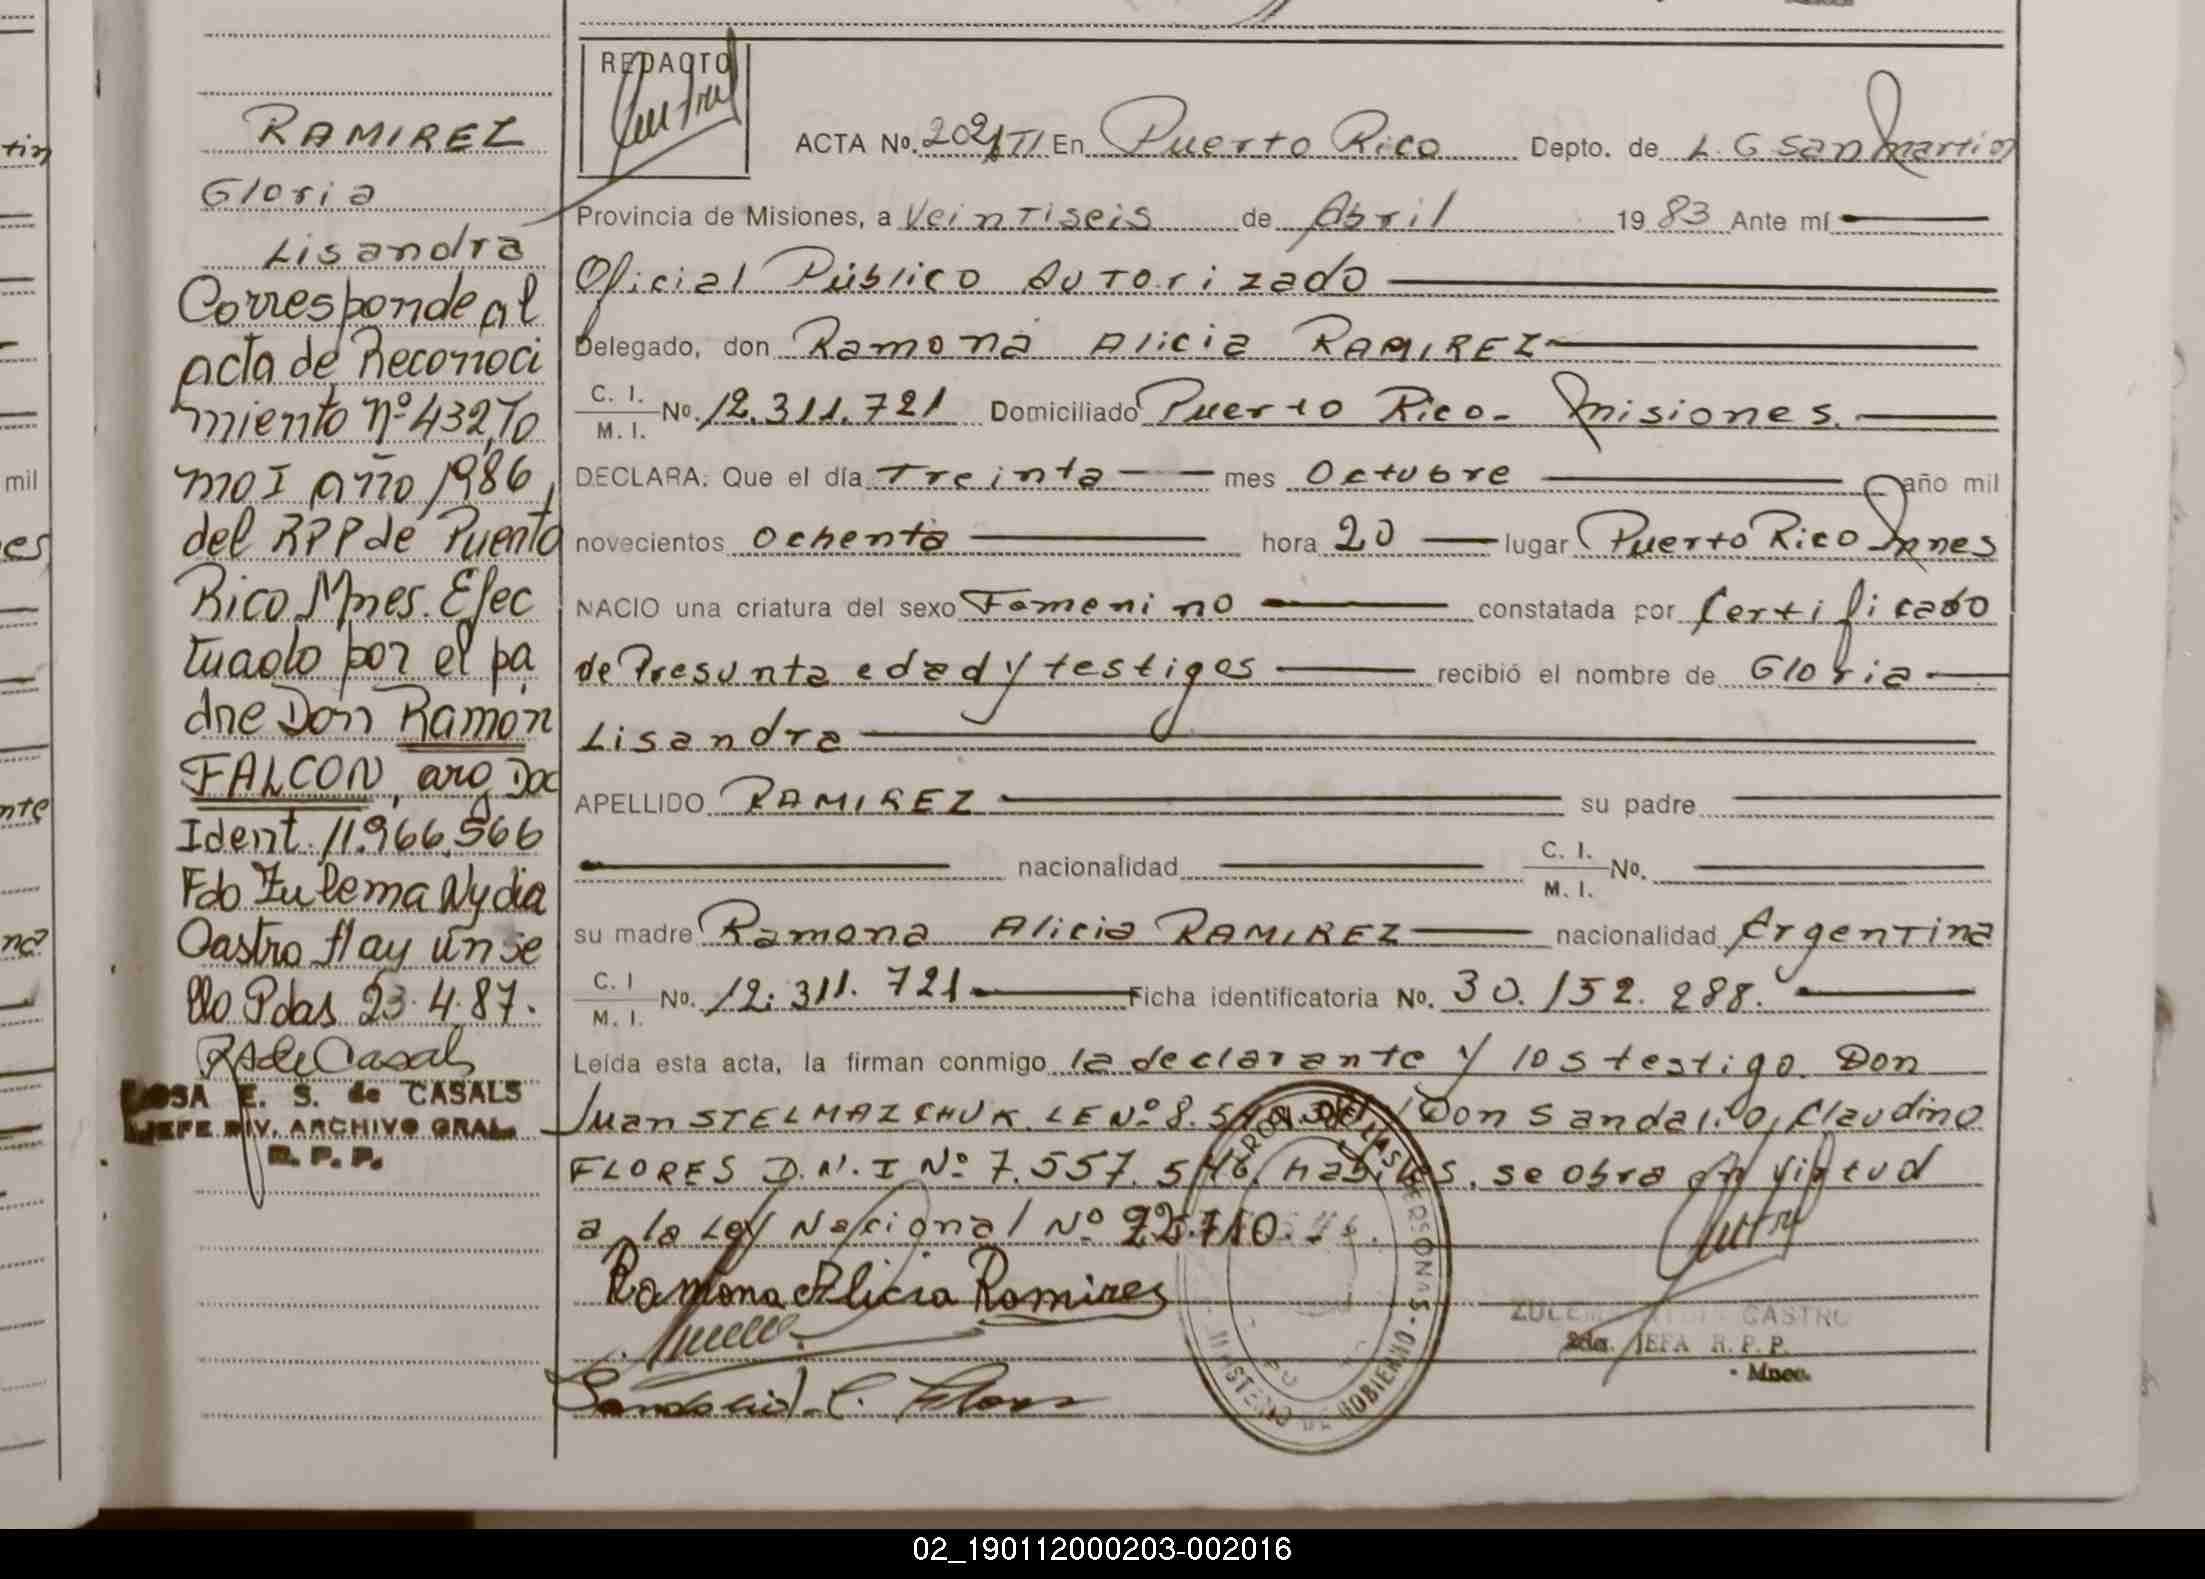 RAMIREZ
Gloria
Lisandra
Corresponde al
acta de Reconoci
miento Nº 432, To
mo I año 1986,
del RPP de Puerto
Rico Mnes. Efec
tuado por el pa
dre Don Ramon
FALCON, arg Doc
Ident. 11.966.566
Fdo Zulema Nydia
Castro Hay un se
llo Pdas 23.4.87.
RSdeCasals
ROSA E. S. de CASALS
JEFE DIV. ARCHIVO GRAL.
R. P. P.
REDACTO
ACTA No. 202 TI En Puerto Rico Depto. de L. G San Martin
Provincia de Misiones, a Veintiseis de Abril 1983 Ante mí
Oficial Público Autorizado
Delegado, don Ramona Alicia RAMIREZ
C. I.
M. I. No. 12.311.721 Domiciliado Puerto Rico - Misiones.
DECLARA: Que el día Treinta mes Octubre año mil
novecientos ochenta hora 20 lugar Puerto Rico Mnes
NACIO una criatura del sexo Femenino constatada por Certificado
de Presunta edad y testigos recibió el nombre de Gloria
Lisandra
APELLIDO RAMIREZ su padre
nacionalidad C. I.
M. I. No.
su madre Ramona Alicia RAMIREZ nacionalidad Argentina
C. I
M. I. No. 12.311.721 Ficha identificatoria No. 30.152.288.
Leída esta acta, la firman conmigo la declarante y los testigo. Don
Juan STELMAZCHUK LE Nº 8. Don Sandalio, Claudino
FLORES D.N.I Nº 7.557.546. habiles. se obra en virtud
a la Ley Nacional Nº 22.710.
Ramona Alicia Ramires
Sandalio C. Flores
DE LAS PERSONAS - MINISTERIO DE GOBIERNO -
ZULEMA CASTRO
2da. JEFA R. P. P.
- Mnes.
tin
mil
es
nte
na
02_190112000203-002016